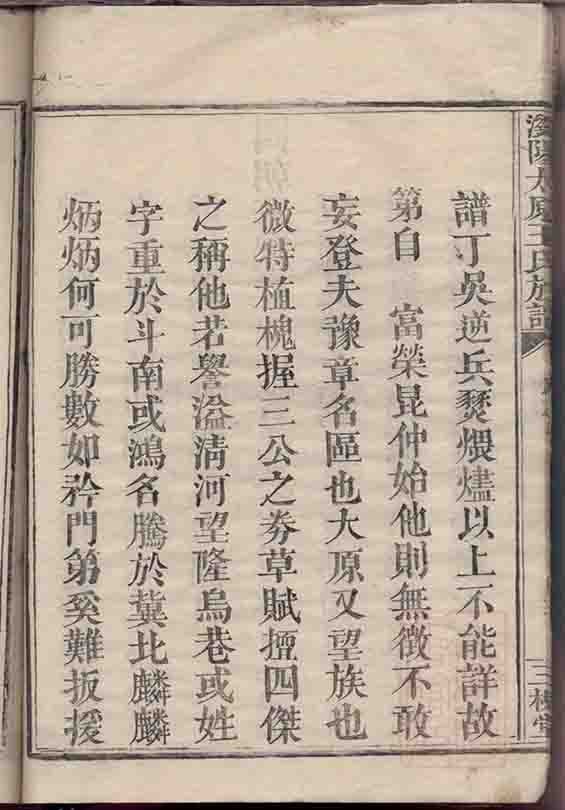 瀏陽太原王氏族譜
三槐堂
譜丁吳逆兵燹煨燼以上不能詳故
第自 富榮昆仲始他則無徵不敢
妄登夫豫章名區也太原又望族也
微特植槐握三公之券草賦擅四傑
之稱他若譽溢清河望隆烏巷或姓
字重於斗南或鴻名騰於冀北麟麟
炳炳何可勝數如矜門第奚難扳援